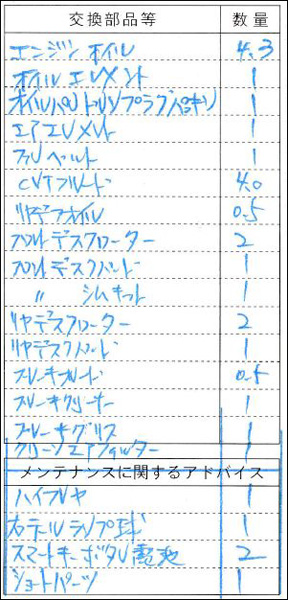 交換部品等 数量
エンジンオイル 4.3
オイルエレメント 1
オイルパンドレンプラグパッキン 1
エアエレメント 1
ファンベルト 1
CVTフルード 4.0
リヤデフオイル 0.5
フロントデスクローター 2
フロントデスクパット 1
〃 シムキット 1
リヤデスクローター 2
リヤデスクパット 1
ブレーキフルード 0.5
ブレーキクリーナー 1
ブレーキグリス 1
クリーンエアフィルター 1
メンテナンスに関するアドバイス
ハイフレヤ 1
右テールランプ球 1
スマートキーボタン電池 2
ショートパーツ 1